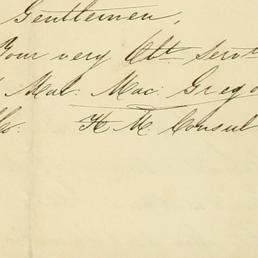 Gentlemen,
Your very Obt. Servt
Mal: Mac: Grego
Co: H M. Consul